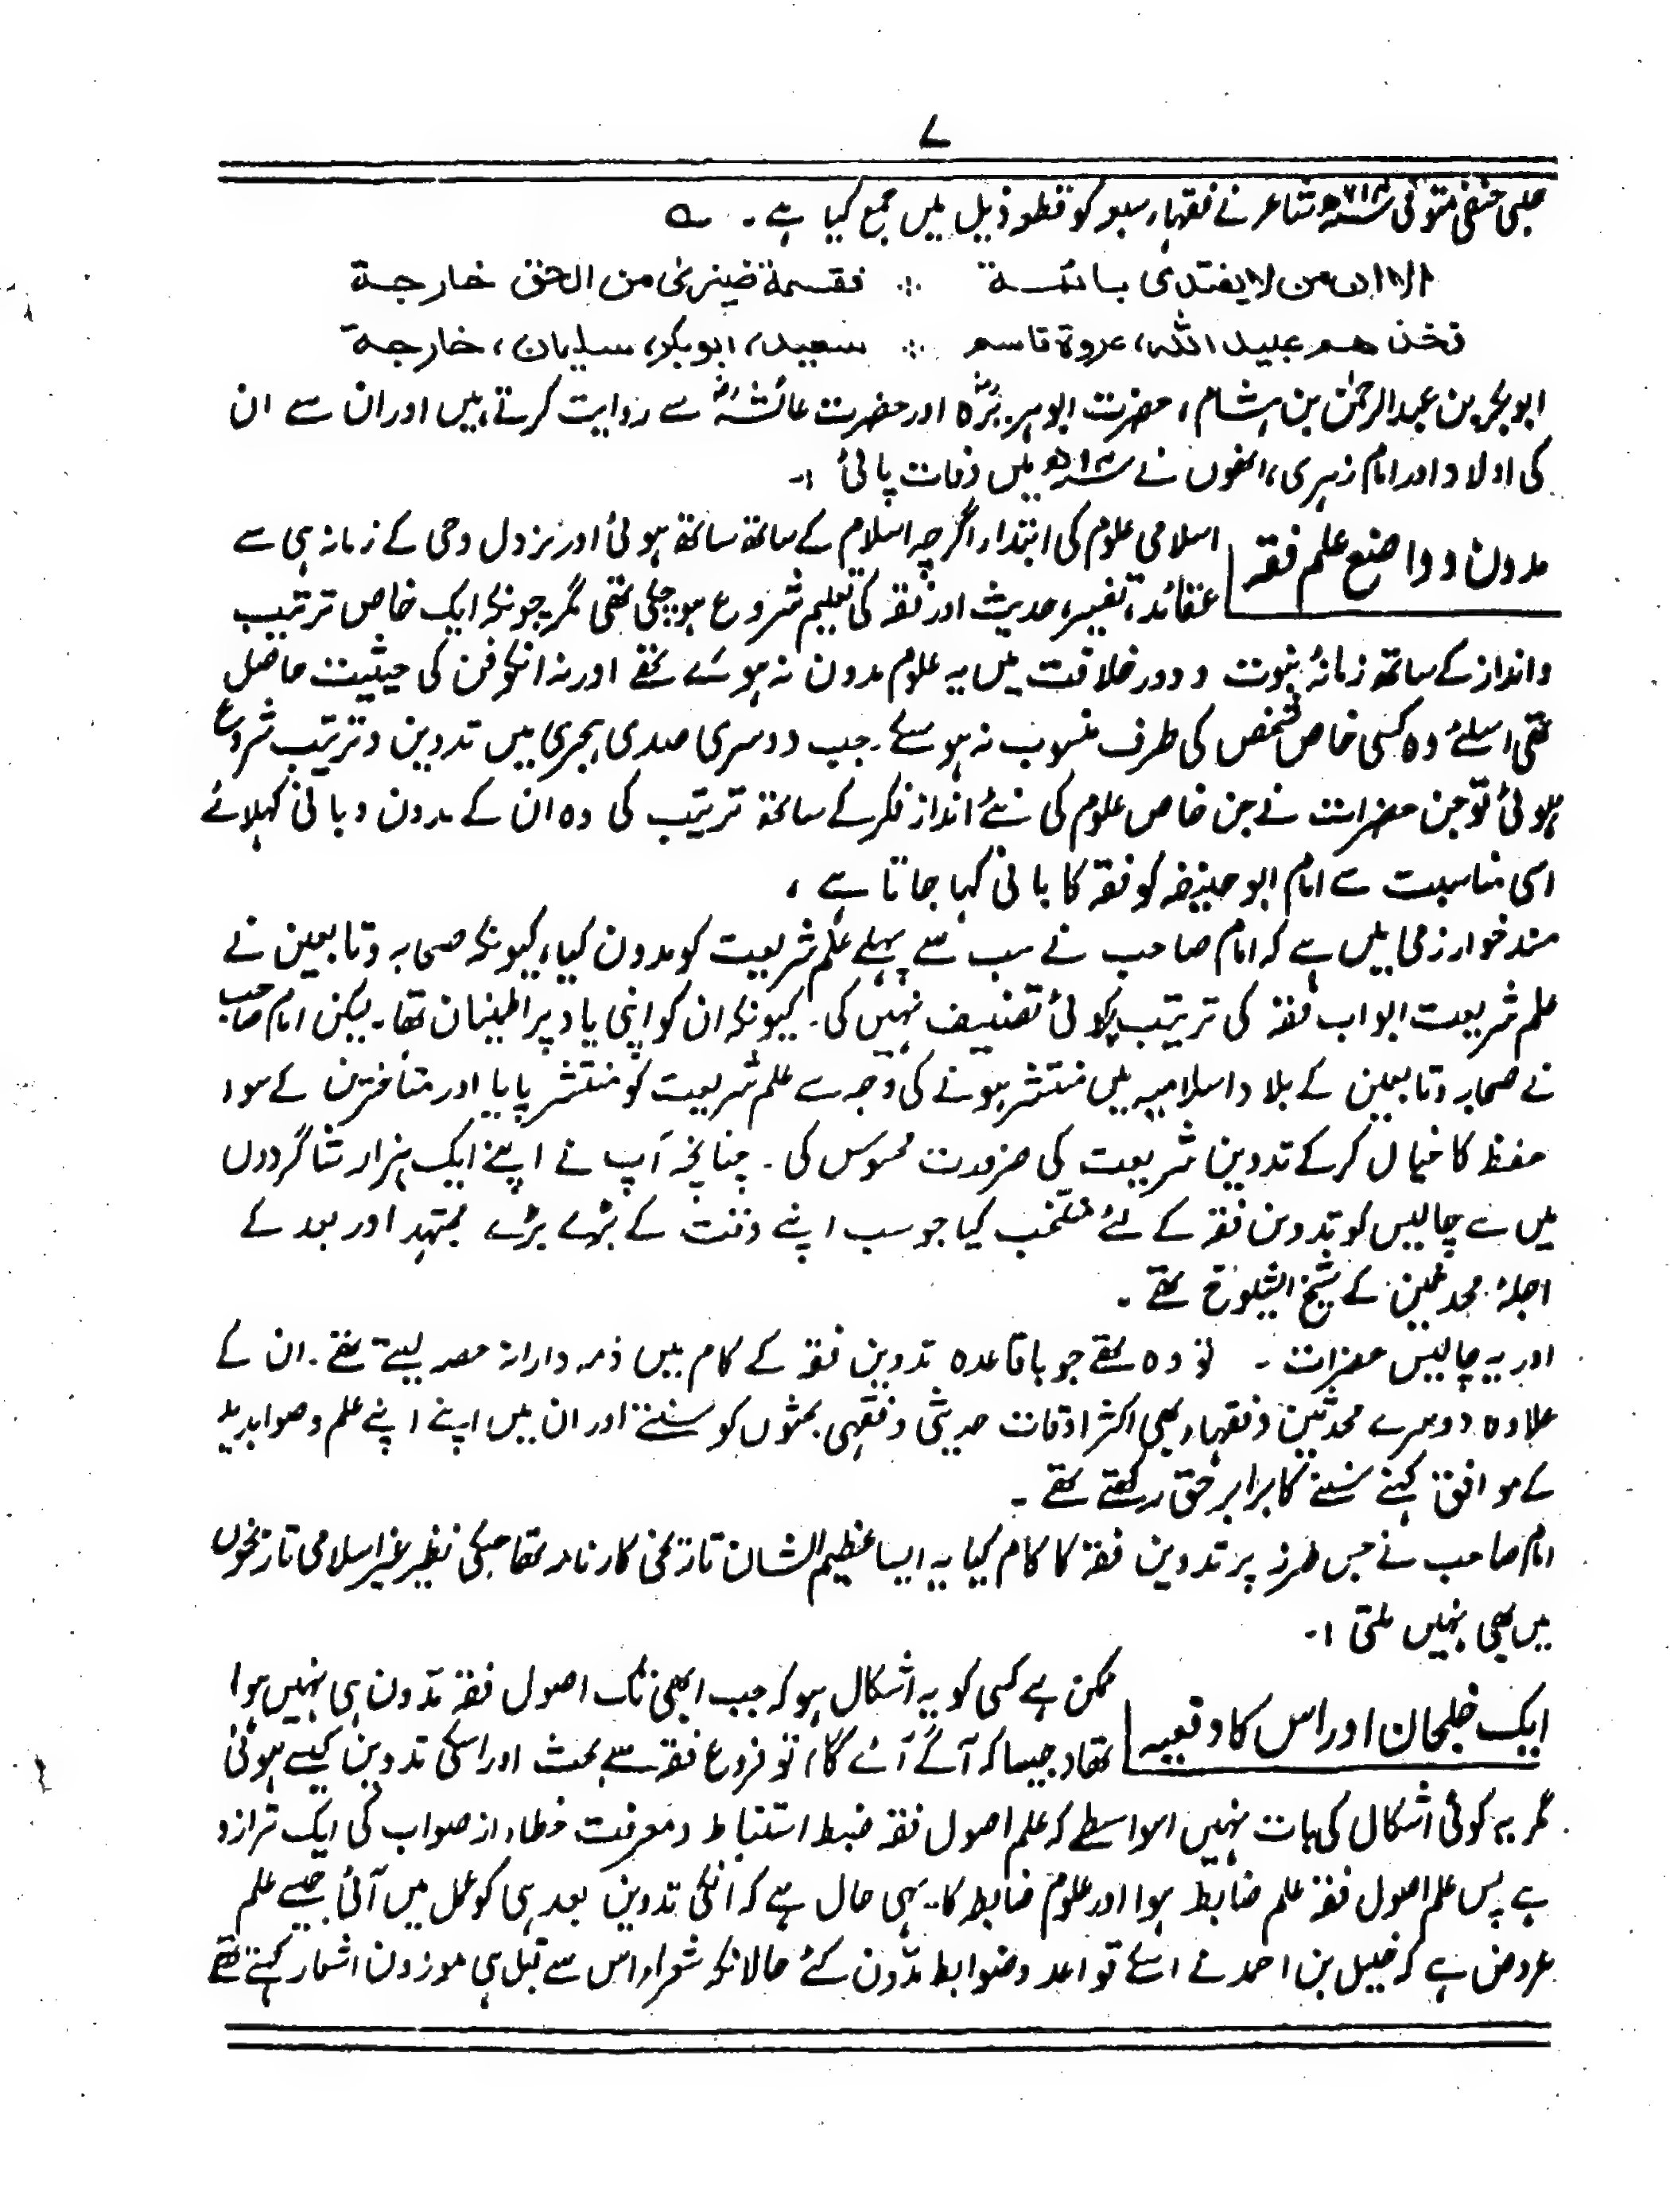 ۷
حلبی حنفی متوفی ۶۱۴ھ شاعر نے فقہاء سبعہ کو قطعہ ذیل میں جمع کیا ہے۔ ؎
الا ان من لا یقتدی بائمة ∴ فقسمة ضیزیٰ من الحق خارجة
فخذ هم عبید اللہ، عروة قاسم ∴ سعید، ابوبکر، سلیمان، خارجة
ابوبکر بن عبدالرحمٰن بن ہشام، حضرت ابوہریرہؓ اور حضرت عائشہؓ سے روایت کرتے ہیں اور ان سے ان
کی اولاد اور امام زہری، انھوں نے میں وفات پائی ۱۔
مدون و واضع علم فقہ
اسلامی علوم کی ابتداء اگرچہ اسلام کے ساتھ ساتھ ہوئی اور نزول وحی کے زمانہ ہی سے
عقائد، تفسیر، حدیث اور فقہ کی تعلیم شروع ہوچکی تھی مگر چونکہ ایک خاص ترتیب
و انداز کے ساتھ زمانۂ نبوت و دور خلافت میں یہ علوم مدون نہ ہوئے تھے اور نہ انکو فن کی حیثیت حاصل
تھی اسلئے وہ کسی خاص شخص کی طرف منسوب نہ ہوسکے۔ جب دوسری صدی ہجری میں تدوین و ترتیب شروع
ہوئی تو جن حضرات نے جن خاص علوم کی نئے انداز فکر کے ساتھ ترتیب کی وہ ان کے مدون و بانی کہلائے
اسی مناسبت سے امام ابو حنیفہ کو فقہ کا بانی کہا جاتا ہے،
مسند خوارزمی میں ہے کہ امام صاحب نے سب سے پہلے علم شریعت کو مدون کیا، کیونکہ صحابہ و تابعین نے
علم شریعت ابواب فقہ کی ترتیب پر کوئی تصنیف نہیں کی۔ کیونکہ ان کو اپنی یاد پر اطمینان تھا۔ لیکن امام صاحب
نے صحابہ و تابعین کے بلاد اسلامیہ میں منتشر ہونے کی وجہ سے علم شریعت کو منتشر پایا اور متأخرین کے سوء
حفظ کا خیال کرکے تدوین شریعت کی ضرورت محسوس کی۔ چنانچہ آپ نے اپنے ایک ہزار شاگردوں
میں سے چالیس کو تدوین فقہ کے لئے منتخب کیا جو سب اپنے وقت کے بڑے بڑے مجتہد اور بعد کے
اجلۂ محدثین کے شیخ الشیوخ تھے۔
اور یہ چالیس حضرات ۔ تو وہ تھے جو باقاعدہ تدوین فقہ کے کام میں ذمہ دارانہ حصہ لیتے تھے۔ ان کے
علاوہ دوسرے محدثین و فقہاء بھی اکثر اوقات حدیثی و فقہی بحثوں کو سنتے اور ان میں اپنے اپنے علم و صوابدید
کے موافق کہنے سننے کا برابر حق رکھتے تھے۔
امام صاحب نے جس طرز پر تدوین فقہ کا کام کیا یہ ایسا عظیم الشان تاریخی کارنامہ تھا جسکی نظیر غیر اسلامی تاریخوں
میں بھی نہیں ملتی ۱۔
ایک خلجان اور اس کا دفعیہ
ممکن ہے کسی کو یہ اشکال ہو کہ جب ابھی تک اصول فقہ مدون ہی نہیں ہوا
تھا، جیسا کہ آگے آئے گا، تو فروع فقہ سے بحث اور اسکی تدوین کیسے ہوئی
مگر یہ کوئی اشکال کی بات نہیں اسواسطے کہ علم اصول فقہ ضبط استنباط و معرفت خطاء از صواب کی ایک ترازو
ہے پس علم اصول فقہ علم ضابط ہوا اور علوم ضابطہ کا یہی حال ہے کہ انکی تدوین بعد ہی کو عمل میں آئی جیسے علم
عروض ہے کہ خلیل بن احمد نے اسکے قواعد و ضوابط مدون کئے حالانکہ شعراء اس سے قبل ہی موزون اشعار کہتے تھے